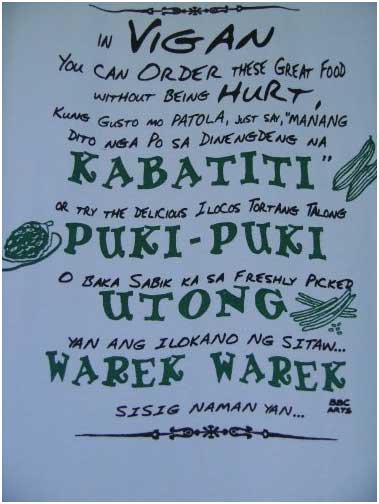 IN VIGAN
YOU CAN ORDER THESE GREAT FOOD
WITHOUT BEING HURT,
KUNG GUSTO MO PATOLA, JUST SAY, "MANANG
DITO NGA PO SA DINENGDENG NA
KABATITI"
OR TRY THE DELICIOUS ILOCOS TORTANG TALONG
PUKI-PUKI
O BAKA SABIK KA SA FRESHLY PICKED
UTONG
YAN ANG ILOKANO NG SITAW...
WAREK WAREK
SISIG NAMAN YAN...
BBC
ARTS